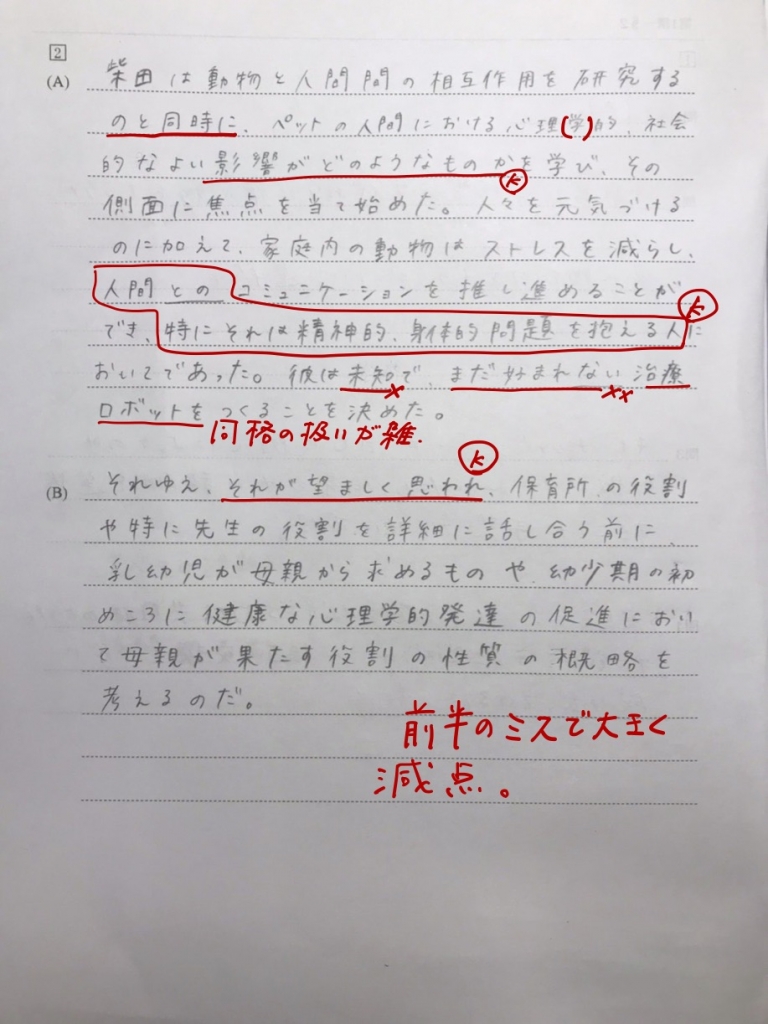 2
(A) 柴田は動物と人間間の相互作用を研究する
のと同時に、ペットの人間における心理(学)的、社会
的なよい影響がどのようなものかを学び、その
K
側面に焦点を当て始めた。人々を元気づける
のに加えて、家庭内の動物はストレスを減らし、
人間とのコミュニケーションを推し進めることが
K
でき、特にそれは精神的、身体的問題を抱える人に
おいてであった。彼は未知で、まだ好まれない治療
× ××
ロボットをつくることを決めた。
同格の扱いが雑.
K
(B) それゆえ、それが望ましく思われ、保育所の役割
や特に先生の役割を詳細に話し合う前に、
乳幼児が母親から求めるものや、幼少期の初
めころに健康な心理学的発達の促進におい
て母親が果たす役割の性質の概略を
考えるのだ。
前半のミスで大きく
減点。